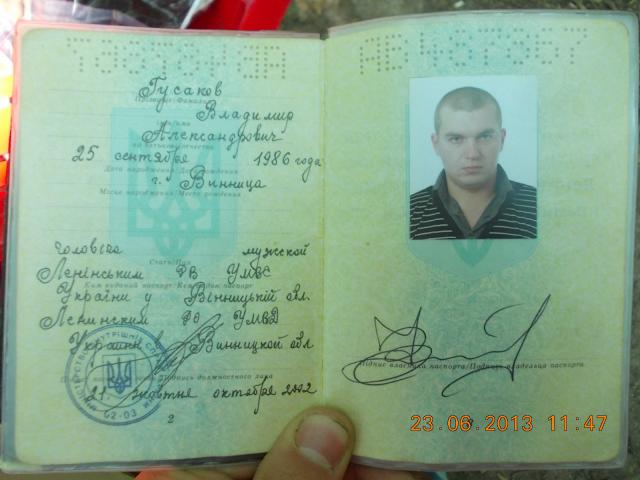 АВ 437367
Гусаков
Прізвище/Фамилия
Владимир
Александрович
по батькові/отчество
25 сентября 1986 года
Дата народження/Дата рождения
г. Винница
Місце народження/Место рождения
чоловіча мужской
Стать/Пол
Ленінським РВ УМВС
Ким виданий паспорт/Кем выдан паспорт
України у Вінницькій обл.
Ленинским РО УМВД
Украины Винницкой обл
подпись должностного лица
21 жовтня октября 2002
02-03
2
Підпис власника паспорта/Подпись владельца паспорта
23.06.2013 11:47